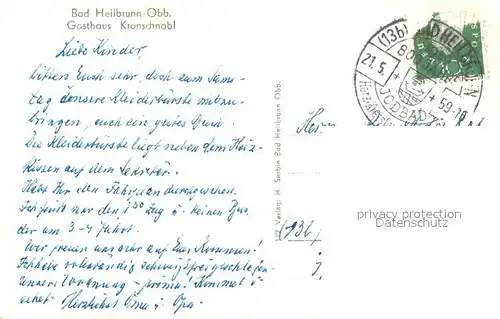 Bad Heilbrunn/Obb.
Gasthaus Kranschnabl
Liebe Kinder,
bitten Euch sehr, doch zum Sams-
tag unsere Kleiderbürste mitzu-
bringen, auch ein gutes Buch.
Die Kleiderbürste liegt neben dem Heiz-
kissen auf dem Sekretär.
Habt Ihr den Fahrplan durchgesehen.
Ich finde nur den 1³⁰ Zug u. keinen Bus
der um 3-4 fährt.
Wir freuen uns sehr auf Euer Kommen!
Ich habe vollständig schweißfrei geschlafen.
Unsere Wohnung - prima! Kommet u.
sehet Herzlichst Oma u. Opa.
117 Verlag: H. Serbin Bad Heilbrunn Obb.
(13b) BAD HEILBRUNN
800
21.5. 59-18
JODBAD
Herrn
(13b)
privacy protection
watermark